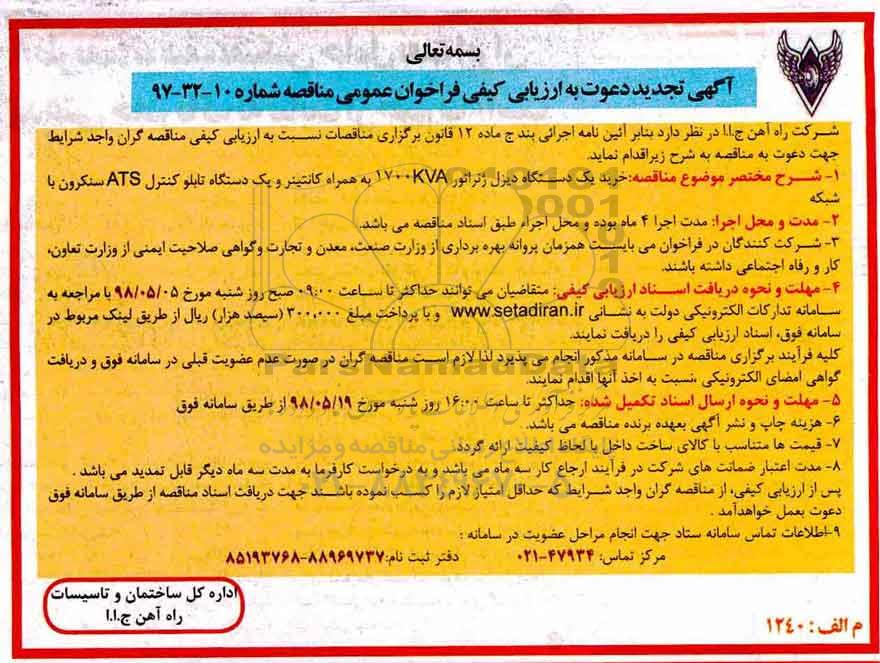 بسمه تعالی
آگهی تجدید دعوت به ارزیابی کیفی فراخوان عمومی مناقصه شماره ۱۰-۳۲-۹۷
شرکت راه آهن ج.ا.ا در نظر دارد بنابر آئین نامه اجرائی بند ج ماده ۱۲ قانون برگزاری مناقصات نسبت به ارزیابی کیفی مناقصه گران واجد شرایط
جهت دعوت به مناقصه به شرح زیر اقدام نماید.
۱- شرح مختصر موضوع مناقصه: خرید یک دستگاه دیزل ژنراتور ۱۷۰۰KVA به همراه کانتینر و یک دستگاه تابلو کنترل ATS سنکرون با
شبکه
۲- مدت و محل اجرا: مدت اجرا ۴ ماه بوده و محل اجراء طبق اسناد مناقصه می باشد.
۳- شرکت کنندگان در فراخوان می بایست همزمان پروانه بهره برداری از وزارت صنعت، معدن و تجارت وگواهی صلاحیت ایمنی از وزارت تعاون،
کار و رفاه اجتماعی داشته باشند.
۴- مهلت و نحوه دریافت اسناد ارزیابی کیفی: متقاضیان می توانند حداکثر تا ساعت ۰۹:۰۰ صبح روز شنبه مورخ ۹۸/۰۵/۰۵ با مراجعه به
سامانه تدارکات الکترونیکی دولت به نشانی www.setadiran.ir و با پرداخت مبلغ ۳۰۰،۰۰۰ (سیصد هزار) ریال از طریق لینک مربوط در
سامانه فوق، اسناد ارزیابی کیفی را دریافت نمایند.
کلیه فرآیند برگزاری مناقصه در سامانه مذکور انجام می پذیرد لذا لازم است مناقصه گران در صورت عدم عضویت قبلی در سامانه فوق و دریافت
گواهی امضای الکترونیکی ،نسبت به اخذ آنها اقدام نمایند.
۵- مهلت و نحوه ارسال اسناد تکمیل شده: حداکثر تا ساعت ۱۶:۰۰ روز شنبه مورخ ۹۸/۰۵/۱۹ از طریق سامانه فوق
۶- هزینه چاپ و نشر آگهی بعهده برنده مناقصه می باشد.
۷- قیمت ها متناسب با کالای ساخت داخل با لحاظ کیفیت ارائه گردد.
۸- مدت اعتبار ضمانت های شرکت در فرآیند ارجاع کار سه ماه می باشد و به درخواست کارفرما به مدت سه ماه دیگر قابل تمدید می باشد .
پس از ارزیابی کیفی، از مناقصه گران واجد شرایط که حداقل امتیاز لازم را کسب نموده باشند جهت دریافت اسناد مناقصه از طریق سامانه فوق
دعوت بعمل خواهد آمد .
۹-اطلاعات تماس سامانه ستاد جهت انجام مراحل عضویت در سامانه :
مرکز تماس: ۴۷۹۳۴-۰۲۱ دفتر ثبت نام: ۸۸۹۶۹۷۳۷-۸۵۱۹۳۷۶۸
اداره کل ساختمان و تاسیسات
راه آهن ج.ا.ا
م الف : ۱۲۴۰
ParsNamadData
پایگاه اطلاع رسانی مناقصه و مزایده